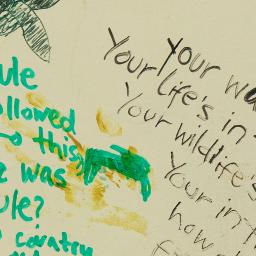 ule
ollowed
this,
was
ule?
country
Your wa
Your life's in
Your wildlife's
Your in th
how